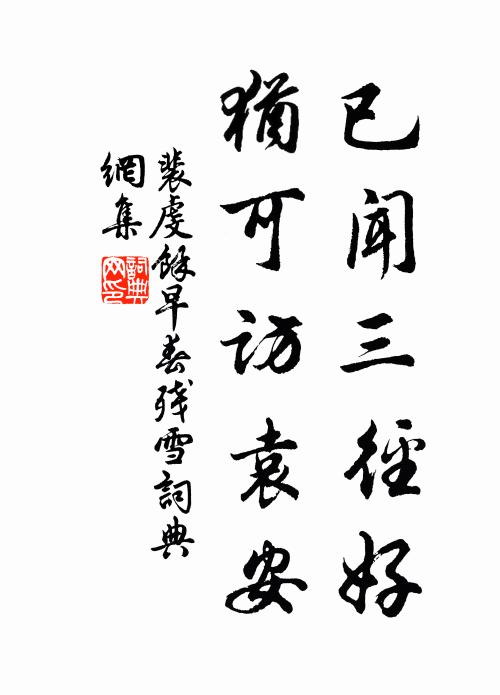 已闻三径好
犹可访袁安
裴虔馀早春残雪詞典
網集
詞典網印